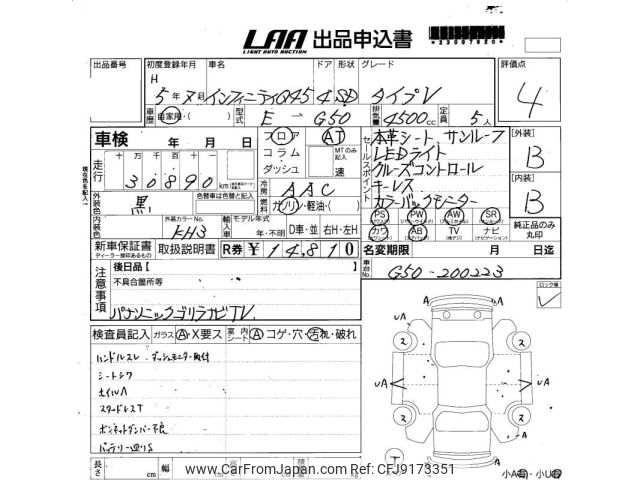 LAA 出品申込書
LIGHT AUTO AUCTION
出品番号 初度登録年月 車名 ドア 形状 グレード 評価点
H 5年 月 インフィニティQ45 4 SD タイプV 4
車歴 自家用・( ) 型式 E - G50 排気量 4500cc 定員 5人
車検 年 月 日
フロア AT
コラム・ダッシュ MTのみ記入 速
走行 十万千百十一 30890 km
冷房 AAC
燃料 ガソリン・軽油・( )
外装色 黒 色替車は色替と記入
内装色 外装カラーNo. KH3
輸入車 モデル年式 年・不明 D車・並 右H・左H
新車保証書 取扱説明書 R券 ¥14,810
ディーラー印のあるもの
セールスポイント
本革シート サンルーフ
LEDライト
クルーズコントロール
キーレス
カラーバックモニター
PS PW AW SR
カワ AB TV ナビ
[外装] B
[内装] B
純正品のみ丸印
名変期限 月 日迄
車台No. G50-200223
注意事項
後日品【 】
不具合箇所等
パナソニックゴリラナビTV
ロック車
検査員記入 ガラス A・X要ス 室内シート A コゲ・穴・汚れ・破れ
ハンドルスレ ダッシュモニター取付
シートシワ
スタッドレスT
ボンネットダンパー不良
長さ cm 幅 cm 高さ cm
UA A UA
UA UA
A
T
小A 小U
CarFromJapan.com REF:CFJ9173351